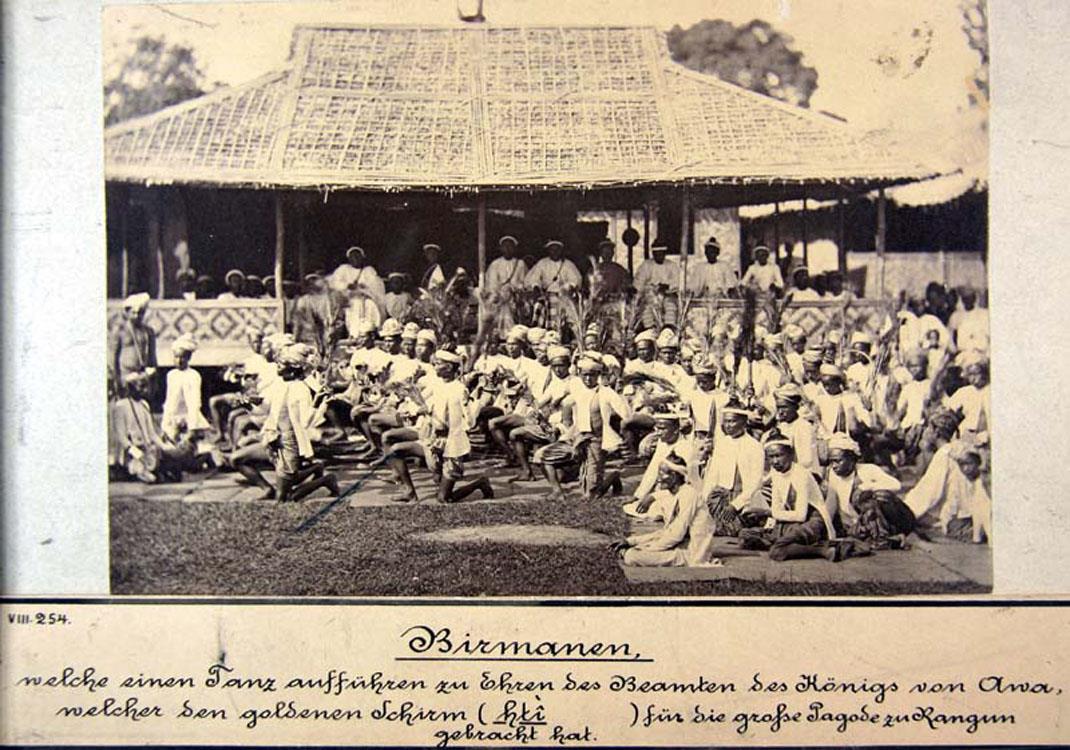 VIII. 254.
Birmanen,
welche einen Tanz aufführen zu Ehren des Beamten des Königs von Awa,
welcher den goldenen Schirm ( htî ) für die große Pagode zu Rangun
gebracht hat.